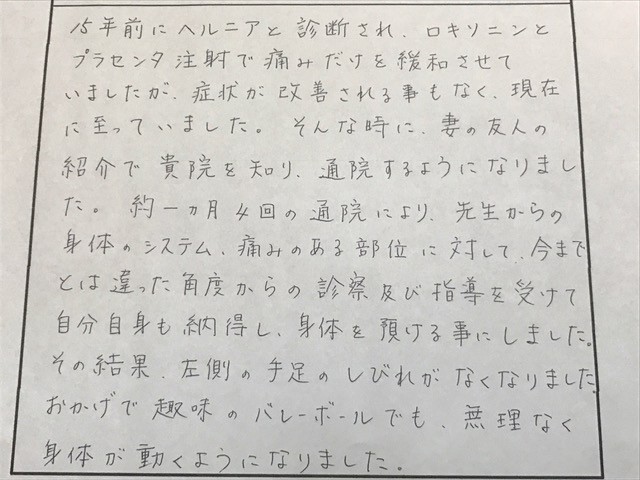 15年前にヘルニアと診断され、ロキソニンと
プラセンタ注射で痛みだけを緩和させて
いましたが、症状が改善される事もなく、現在
に至っていました。そんな時に、妻の友人の
紹介で貴院を知り、通院するようになりまし
た。約一ヵ月4回の通院により、先生からの
身体のシステム、痛みのある部位に対して、今まで
とは違った角度からの診察及び指導を受けて
自分自身も納得し、身体を預ける事にしました。
その結果、左側の手足のしびれがなくなりました
おかげで趣味のバレーボールでも、無理なく
身体が動くようになりました。